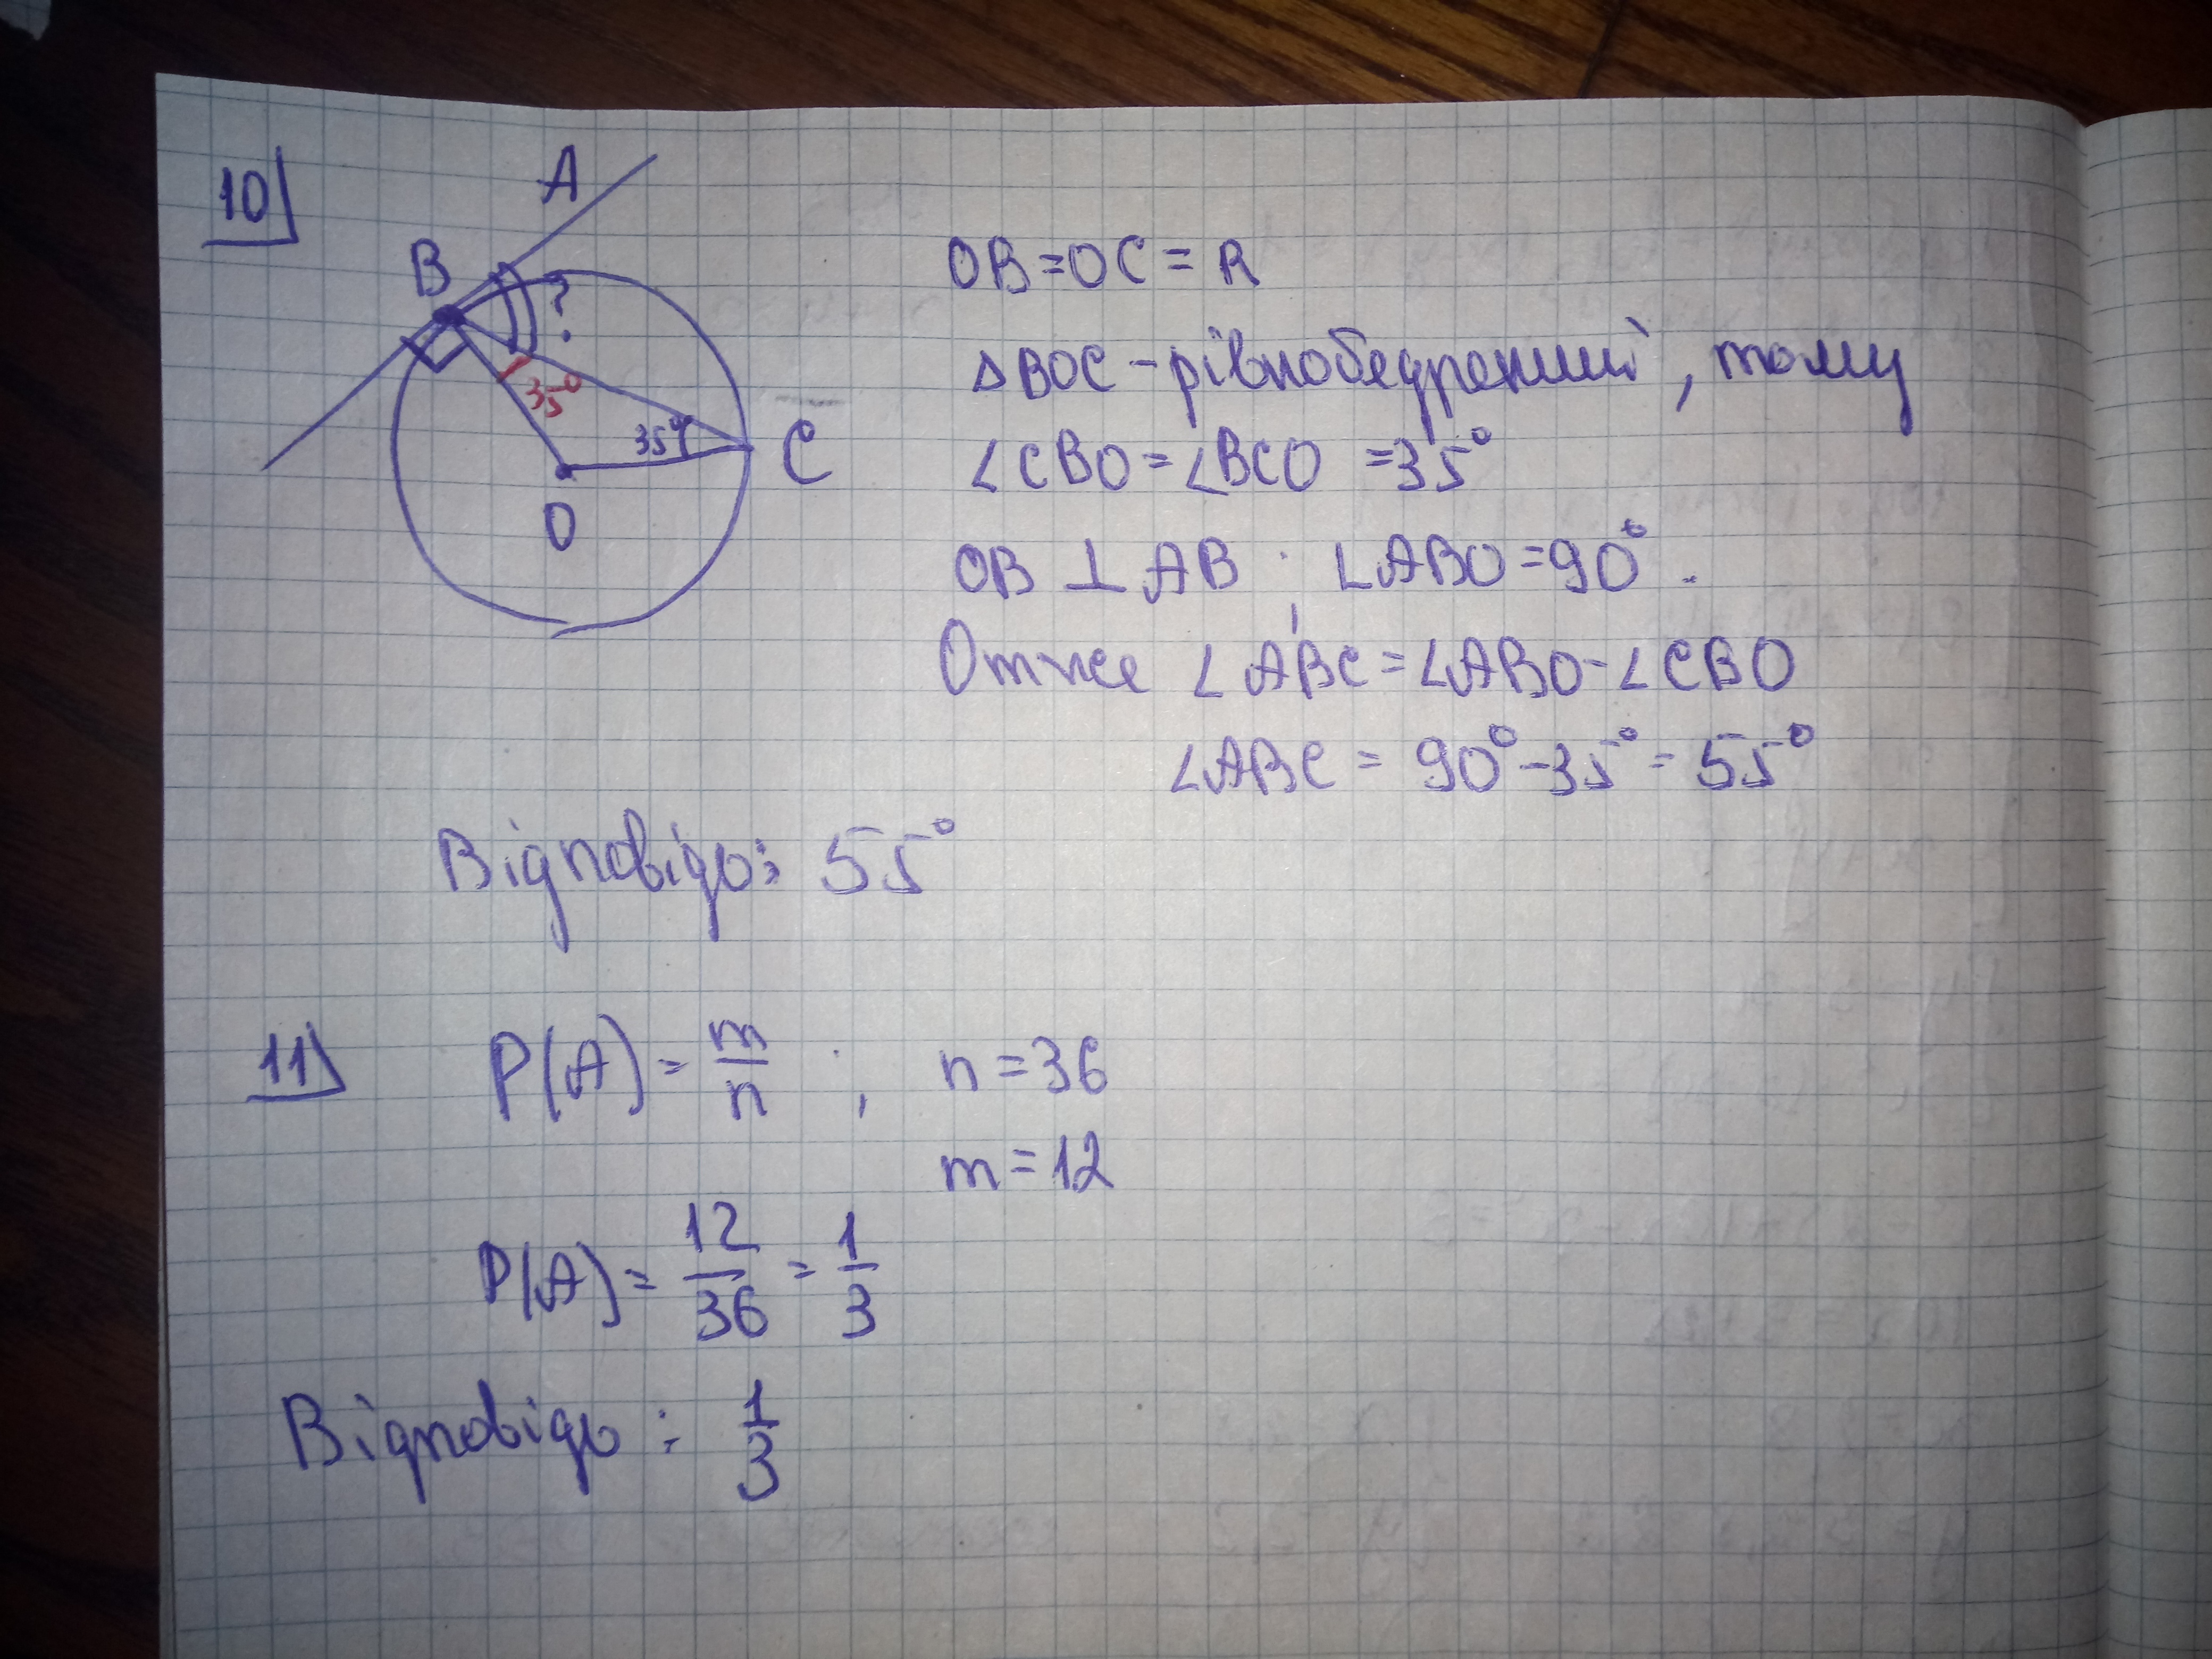 10)
A
B
?
35°
35°
C
O
OB = OC = R
△BOC - рівнобедрений, тому
∠CBO = ∠BCO = 35°
OB ⊥ AB; ∠ABO = 90°.
Отже ∠ABC = ∠ABO - ∠CBO
∠ABC = 90° - 35° = 55°
Відповідь: 55°
11) P(A) = m/n ; n = 36
m = 12
P(A) = 12/36 = 1/3
Відповідь: 1/3